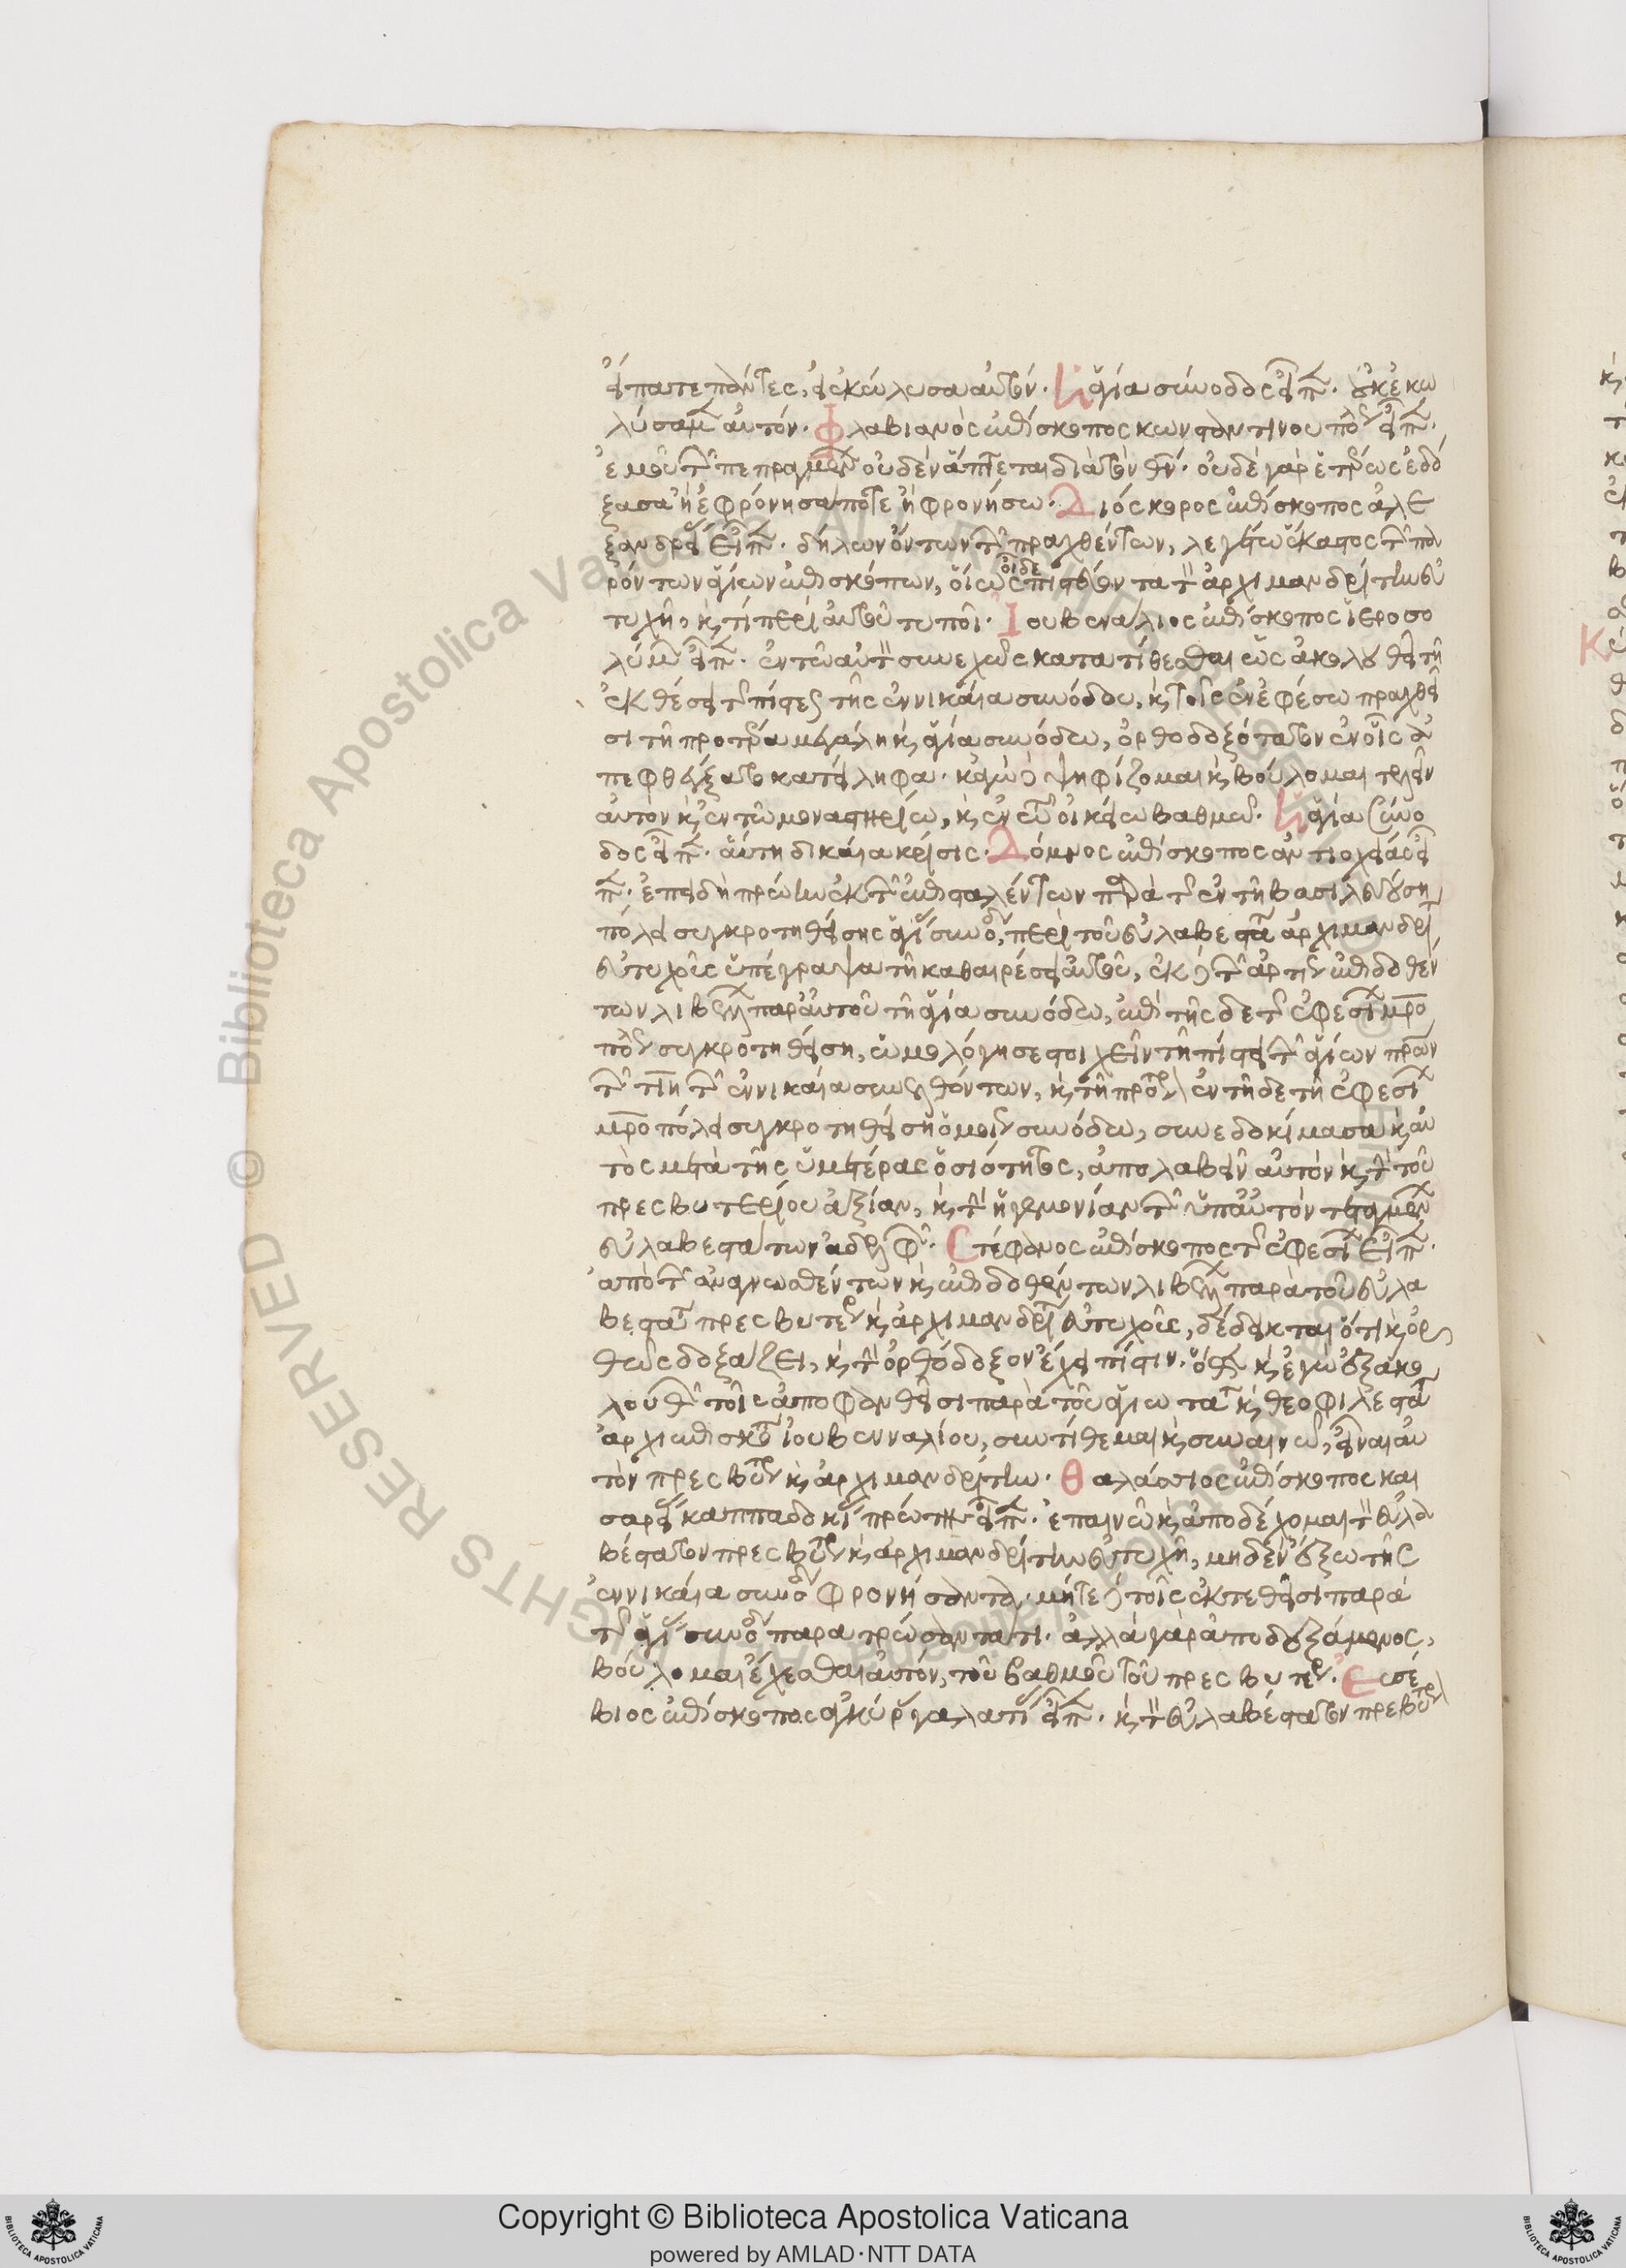 εἴπατε πάντες, εἰ ἐκώλυσα αὐτόν. Ἡ ἁγία σύνοδος εἶπ. οὐκ ἐκω
λύσαμ αὐτόν. Φλαβιανὸς ἐπίσκοπος κωνσταντινουπόλ εἶπ.
ἐμοῦ τῶν πεπραγμέν οὐδὲν ἅπτεται διὰ τὸν θν. οὐδὲ γὰρ ἑτέρως ἐδό
ξασα ἢ ἐφρόνησα ποτὲ ἢ φρονήσω. Διόσκορος ἐπίσκοπος ἀλε
ξανδρεί εἶπ. δήλων ὄντων τῶν πραχθέντων, λεγέτω ἕκαστος τῶν πα
ρόντων ἁγίων ἐπισκόπων, οἵως οἶδε πιστεύοντα τὸν ἀρχιμανδρίτην εὐ
τυχῆ, κ τί περὶ αὐτοῦ τυποῖ. Ἰουβενάλιος ἐπίσκοπος ἱεροσο
λύμ εἶπ. ἐν τῶ αὐτὸν συνεχῶς κατατίθεσθαι ὡς ἀκολουθεῖ τῆ
ἐκθέσει τῆς πίστεως τῆς ἐν νικαία συνόδου, κ τοῖς ἐν ἐφέσω πραχθεῖ
σι τῆ προτέρα μεγάλη κ ἁγία συνόδω, ὀρθοδοξότατον ἐν οἷς ἀ
πεφθέγξατο κατείληφα. κἀγὼ δὲ ψηφίζομαι κ βούλομαι εἶναι
αὐτὸν κ ἐν τῶ μοναστηρίω, κ ἐν τῶ οἰκείω βαθμῶ. Ἡ ἁγία σύνο
δος εἶπ. αὕτη δικαία κρίσις. Δόμνος ἐπίσκοπος ἀντιοχείας εἶ
π. ἐπειδὴ πρώην ἐκ τῶν ἐπισταλέντων παρὰ τῆς ἐν τῆ βασιλευούση
πόλει συγκροτηθείσης ἁγί συνό, περὶ τοῦ εὐλαβεστα ἀρχιμανδρί
εὐτυχοῦς ὑπέγραψα τῆ καθαιρέσει αὐτοῦ, ἐκ δὲ τῶν ἀρτίως ἐπιδοθέν
των λιβέλλ παρ' αὐτοῦ τῆ ἁγία συνόδω, ἐπὶ τῆσδε τῆς ἐφεσί μρο
πόλ συγκροτηθείση, ὡμολόγησε στοιχεῖν τῆ πίστει τῶν ἁγίων πρων
τῶν τιη τῶν ἐν νικαία συνελθόντων, κ τῆ προτέρ ἐν τῆδε τῆ ἐφεσί
μροπόλει συγκροτηθείση ὁμοίως συνόδω, συνεδοκίμασα κ αὐ
τὸς μετὰ τῆς ὑμετέρας ὁσιότητος, ἀπολαβεῖν αὐτὸν κ τὴν τοῦ
πρεσβυτερίου ἀξίαν, κ τὴν ἡγεμονίαν τῶν ὑπ' αὐτὸν τεταγμέν
εὐλαβεστάτων ἀδελφῶν. Στέφανος ἐπίσκοπος τῆς ἐφεσί εἶπ.
ἀπὸ τῶν ἀναγνωσθέντων κ ἐπιδοθέντων λιβέλλ παρὰ τοῦ εὐλα
βεστα πρεσβυτέρ κ ἀρχιμανδρί εὐτυχοῦς, δέδεικται ὅτι κ ὀρ
θῶς δοξάζει, κ τὴν ὀρθόδοξον ἔχει πίστιν. ὅθεν κ ἐγὼ ἐξακο
λουθῶν τοῖς ἀποφανθεῖσι παρὰ τοῦ ἁγιωτα κ θεοφιλεστα
ἀρχιεπισκόπ ἰουβενναλίου, συντίθεμαι κ συναινῶ, εἶναι αὐ
τὸν πρεσβύτερ κ ἀρχιμανδρίτην. Θαλάσσιος ἐπίσκοπος και
σαρεί καππαδοκί πρώτης εἶπ. ἐπαινῶ κ ἀποδέχομαι τὸν εὐλα
βέστατον πρεσβύτερ κ ἀρχιμανδρίτην εὐτυχῆ, μηδὲν ἔξω τῆς
ἐν νικαία συνόδ φρονήσαντα. μήτε δὲ τοῖς ἐκτεθεῖσι παρὰ
τῆς ἁγί συνόδ παρατρώσαντα τι. ἀλλὰ γὰρ ἀποδεξάμενος,
βούλομαι ἔχεσθαι αὐτόν, τοῦ βαθμοῦ τοῦ πρεσβυτέρ. Εὐσέ
βιος ἐπίσκοπος ἀγκύρ γαλατί εἶπ. κ τὸν εὐλαβέστατον πρεβύτερ